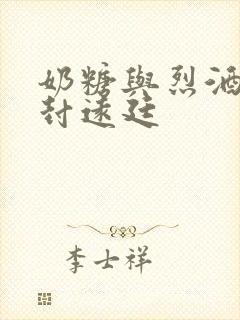 奶糖與烈酒
封遠廷
李士祥